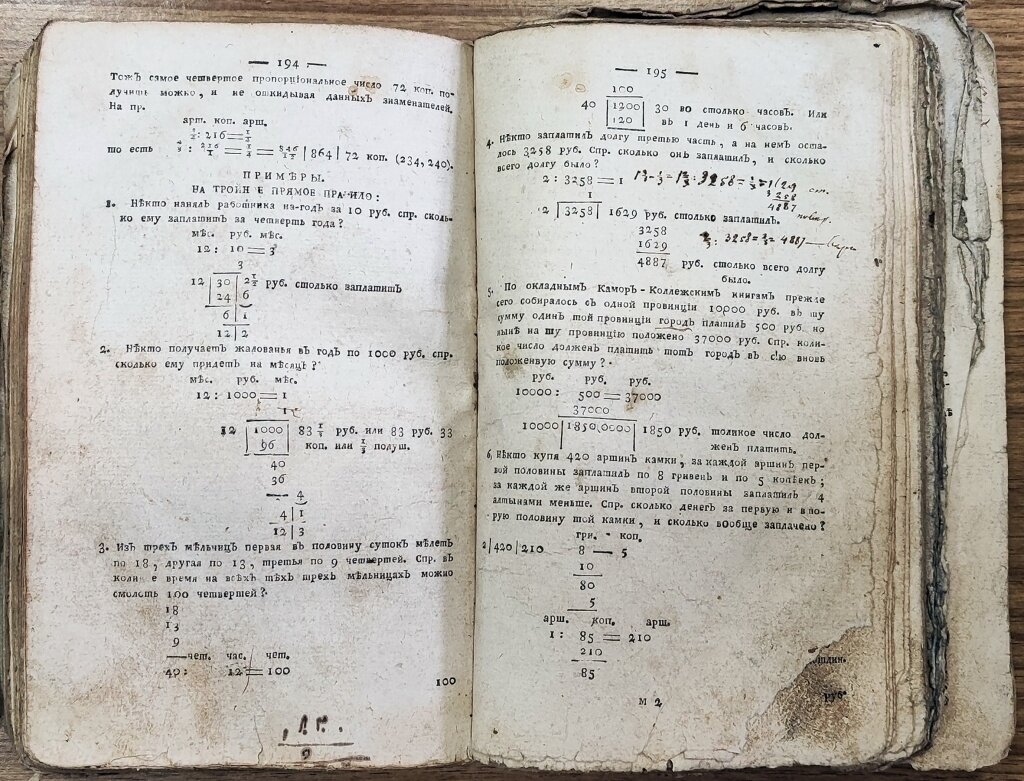 — 194 —
Тожъ самое четвертое пропорціональное число 72 коп. по-
лучить можно, и не откидывая данныхъ знаменателей.
На пр.
арт. коп. арш.
: 216 =
то есть | 864 | 72 коп. (234, 240).
ПРИМѢРЫ.
НА ТРОЙН Е ПРЯМОЕ ПРА ИЛО:
1. Нѣкто нанялъ работника на-годъ за 10 руб. спр. сколь-
ко ему заплатить за четверть года?
мѣс. руб. мѣс.
12: 10 = 3
3
12 | 30 | 2 1/2 руб. столько заплатитъ
24 | 6
6 | 1
12 | 2
2. Нѣкто получаетъ жалованья въ годъ по 1000 руб. спр.
сколько ему придетъ на мѣсяцъ?
мѣс. руб. мѣс.
12: 1000 = 1
1
12 | 1000 | 83 1/3 руб. или 83 руб. 33
96 | коп. или 1/3 полуш.
40
36
— 4
4 | 1
12 | 3
3. Изъ трехъ мѣльницъ первая въ половину сутокъ мѣлетъ
по 18, другая по 13, третья по 9 четвертей. Спр. въ
коли е время на всѣхъ тѣхъ трехъ мѣльницахъ можно
смолоть 100 четвертей?
18
13
9
— чет. час. чет.
40: 12 = 100
100
— 195 —
100
40 | 1200 | 30 во столько часовъ. Или
120 | въ 1 день и 6 часовъ.
4. Нѣкто заплатилъ долгу третью часть, а на немъ оста-
лось 3258 руб. Спр. сколько онъ заплатилъ, и сколько
всего долгу было?
2: 3258 = 1 : 3258 = = 1629
3258
4887
1
2 | 3258 | 1629 руб. столько заплатилъ.
3258 : 3258 = = 4887
1629
4887 руб. столько всего долгу
было.
5. По окладнымъ Камор-Коллежскимъ книгамъ прежде
сего собиралось съ одной провинціи 10000 руб. въ ту
сумму одинъ той провинціи городъ платилъ 500 руб. но
нынѣ на ту провинцію положено 37000 руб. Спр. коли-
кое число долженъ платить тотъ городъ въ сію вновь
положенную сумму?
руб. руб. руб.
10000: 500 = 37000
37000
10000 | 1850,0000 | 1850 руб. толикое число дол-
женъ платить.
6. Нѣкто купя 420 аршинъ камки, за каждой аршинъ пер-
вой половины заплатилъ по 8 гривенъ и по 5 копѣекъ;
за каждой же аршинъ второй половины заплатилъ 4
алтынами меньше. Спр. сколько денегъ за первую и вто-
рую половину той камки, и сколько вообще заплачено?
гри. коп.
2 | 420 | 210 8 — 5
10
80
5
арш. коп. арш.
1: 85 = 210
210
85
М 2 руб.